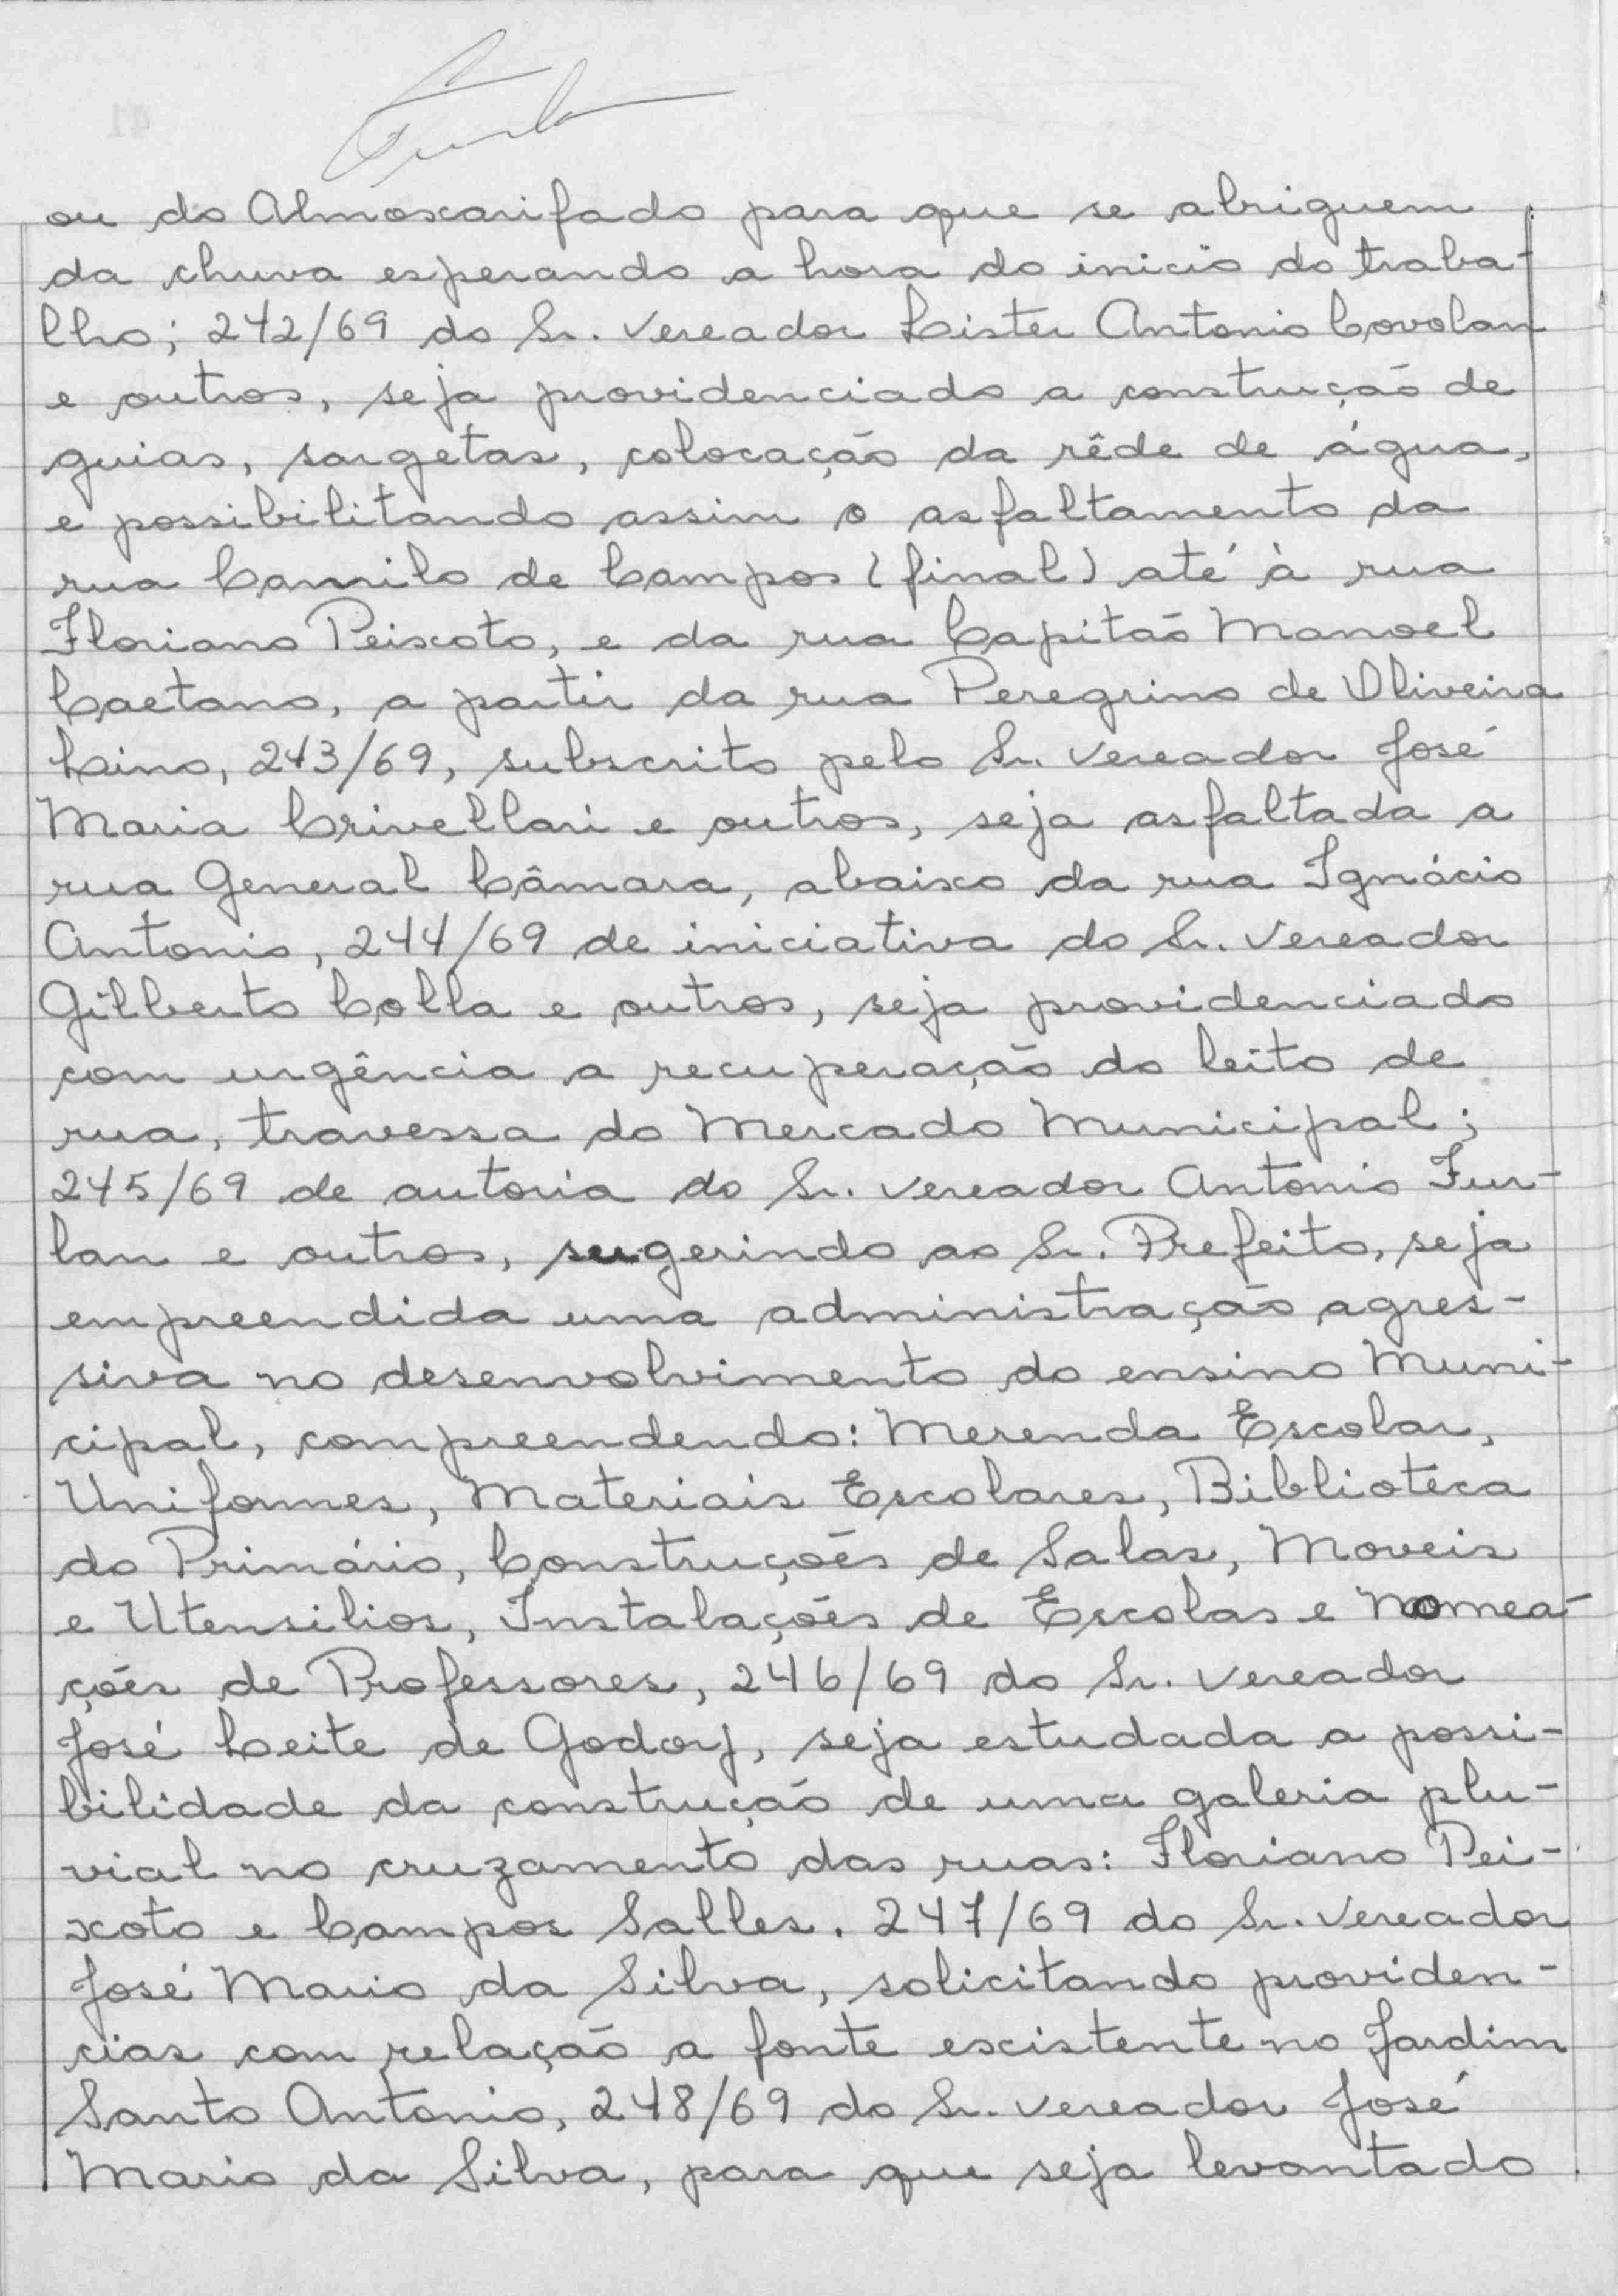 ou do Almoxarifado para que se abriguem
da chuva esperando a hora do inicio do traba-
lho; 242/69 do Sr. Vereador Lister Antonio Covolan
e outros, seja providenciado a construção de
guias, sargetas, colocação da rêde de água,
e possibilitando assim o asfaltamento da
rua Camilo de Campos (final) até à rua
Floriano Peixoto, e da rua Capitão Manoel
Caetano, a partir da rua Peregrino de Oliveira
Lino, 243/69, subscrito pelo Sr. Vereador José
Maria Crivellari e outros, seja asfaltada a
rua General Câmara, abaixo da rua Ignácio
Antonio, 244/69 de iniciativa do Sr. Vereador
Gilberto Colla e outros, seja providenciado
com urgência a recuperação do leito de
rua, travessa do Mercado Municipal;
245/69 de autoria do Sr. Vereador Antonio Fur-
lan e outros, sugerindo ao Sr. Prefeito, seja
empreendida uma administração agres-
siva no desenvolvimento do ensino Muni-
cipal, compreendendo: Merenda Escolar,
Uniformes, Materiais Escolares, Biblioteca
do Primário, Construções de Salas, Moveis
e Utensilios, Instalações de Escolas e Nomea-
ções de Professores, 246/69 do Sr. Vereador
José Leite de Godoy, seja estudada a possi-
bilidade da construção de uma galeria plu-
vial no cruzamento das ruas: Floriano Pei-
xoto e Campos Salles. 247/69 do Sr. Vereador
José Mario da Silva, solicitando providen-
cias com relação a fonte existente no Jardim
Santo Antonio, 248/69 do Sr. Vereador José
Mario da Silva, para que seja levantado